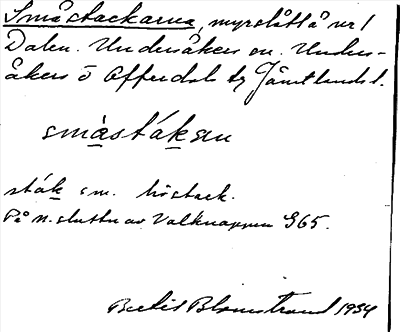 Småstackarna, myrslått å nr 1
Dalen. Undersåkers sn. Unders-
åkers o Offerdals tg Jämtlands l.
småstákan
sták sm. höstack.
På n. slutten av Valknappen 965.
Bertil Blomstrand 1934